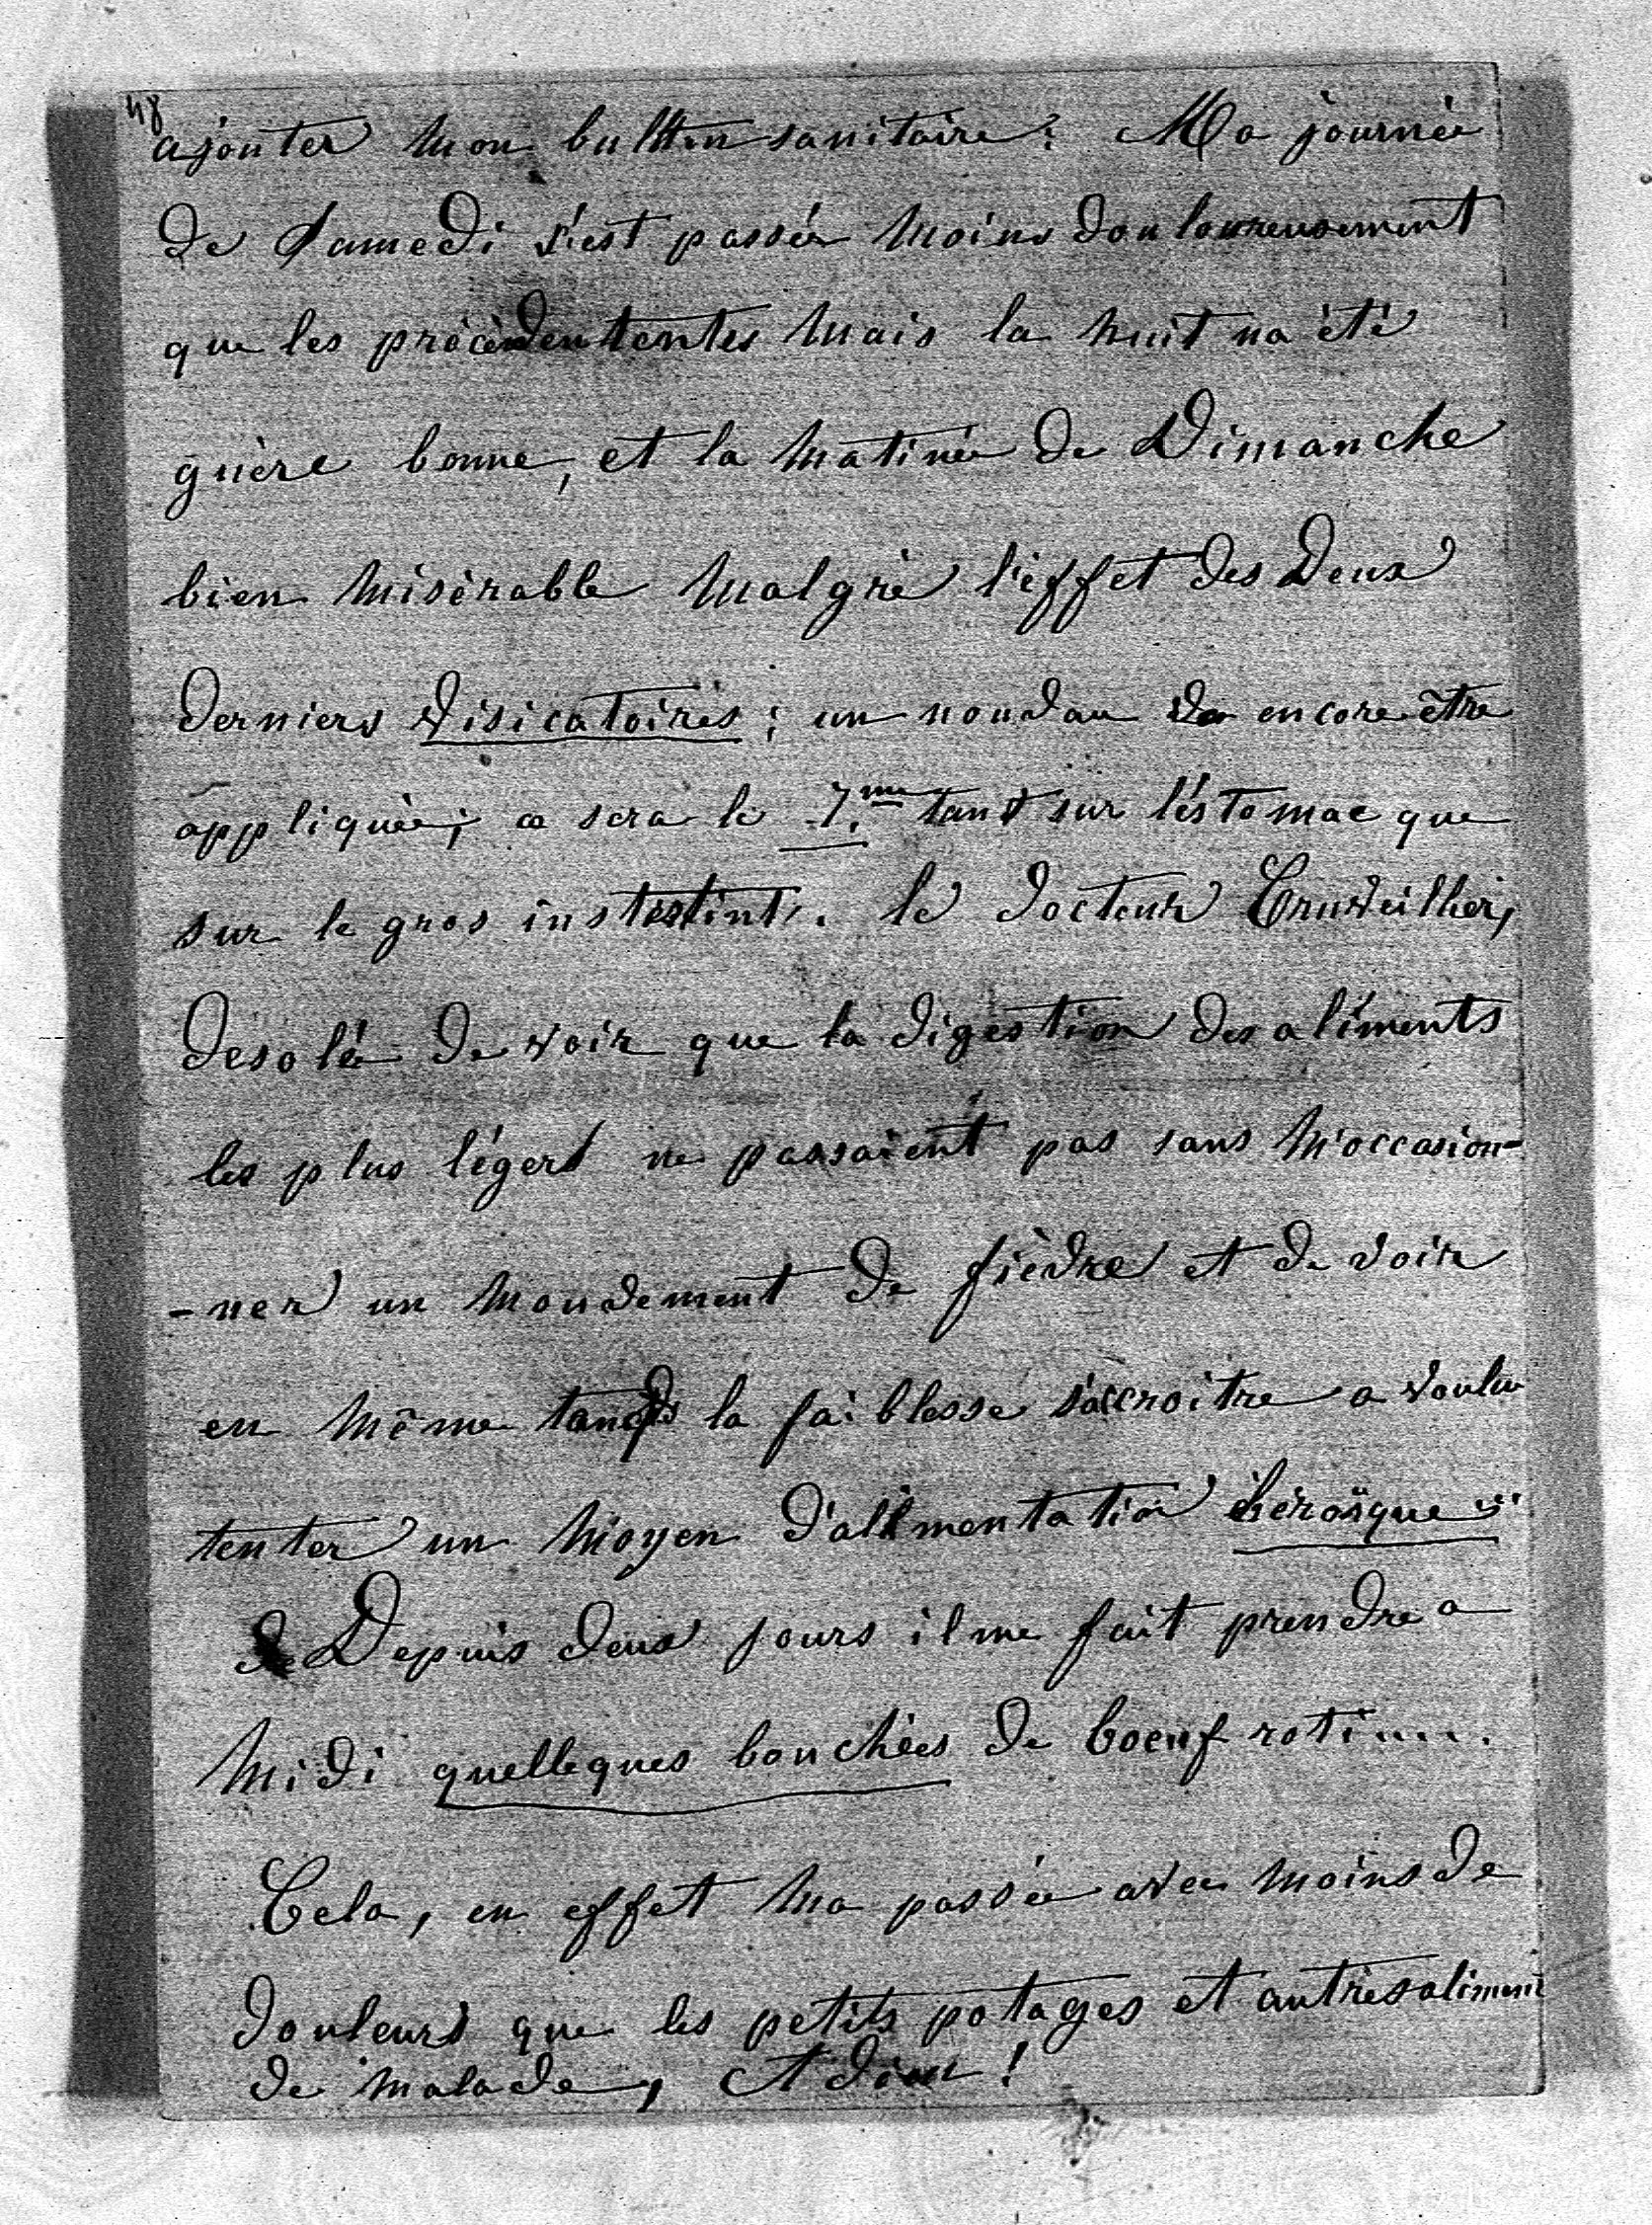 48
ajouter mon bulltin sanitaire : Ma journée
de Samedi s'est passée moins douloureusement
que les précédententes mais la nuit na été
guère bonne, et la matinée de Dimanche
bien misérable malgré l'éffet des deux
derniers visicatoires ; un nouvau va encore être
appliquée, ce sera le 7.me tant sur l'éstomac que
sur le gros instestint. le docteur Cruveilhier,
désolée de voir que la digestion des aliments
les plus légers ne passaient pas sans m'occasion-
-ner un mouvement de fièvre et de voir
en même temps la faiblesse s'accroitre a voulu
tenter un moyen d'alimentation héroïque
Depuis deux jours il me fait prendre a
midi quelleques bouchées de boeuf roti....
Cela, en effet ma passée avec moins de
douleurs que les petits potages et autres aliment
de malade, Adieu !